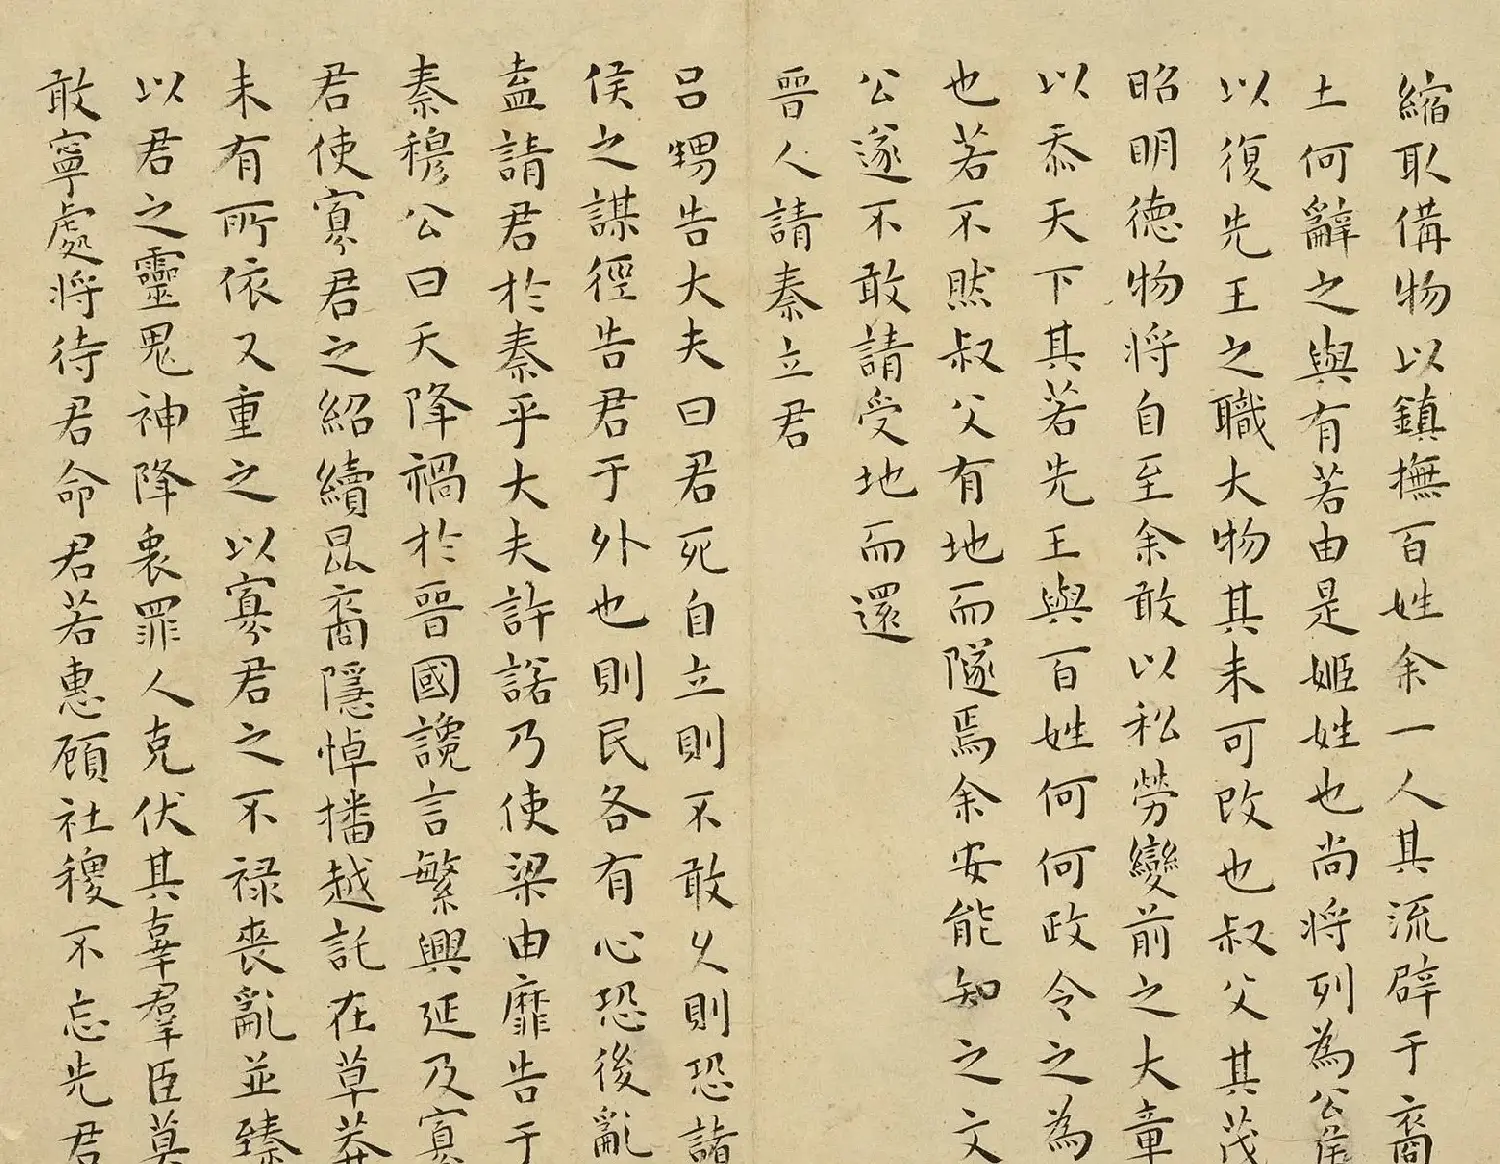 縮取備物以鎮撫百姓余一人其流辟于裔
土何辭之與有若由是姬姓也尚將列為公侯
以復先王之職大物其未可改也叔父其茂
昭明德物將自至余敢以私勞變前之大章
以忝天下其若先王與百姓何何政令之為
也若不然叔父有地而隧焉余安能知之文
公遂不敢請受地而還
晉人請秦立君
呂甥告大夫曰君死自立則不敢久則恐諸
侯之謀徑告君于外也則民各有心恐後亂
盍請君於秦乎大夫許諾乃使梁由靡告于
秦穆公曰天降禍於晉國讒言繁興延及寡
君使寡君之紹續昆裔隱悼播越託在草莽
未有所依又重之以寡君之不祿喪亂並臻
以君之靈鬼神降衷罪人克伏其辜羣臣莫
敢寧處將待君命君若惠顧社稷不忘先君